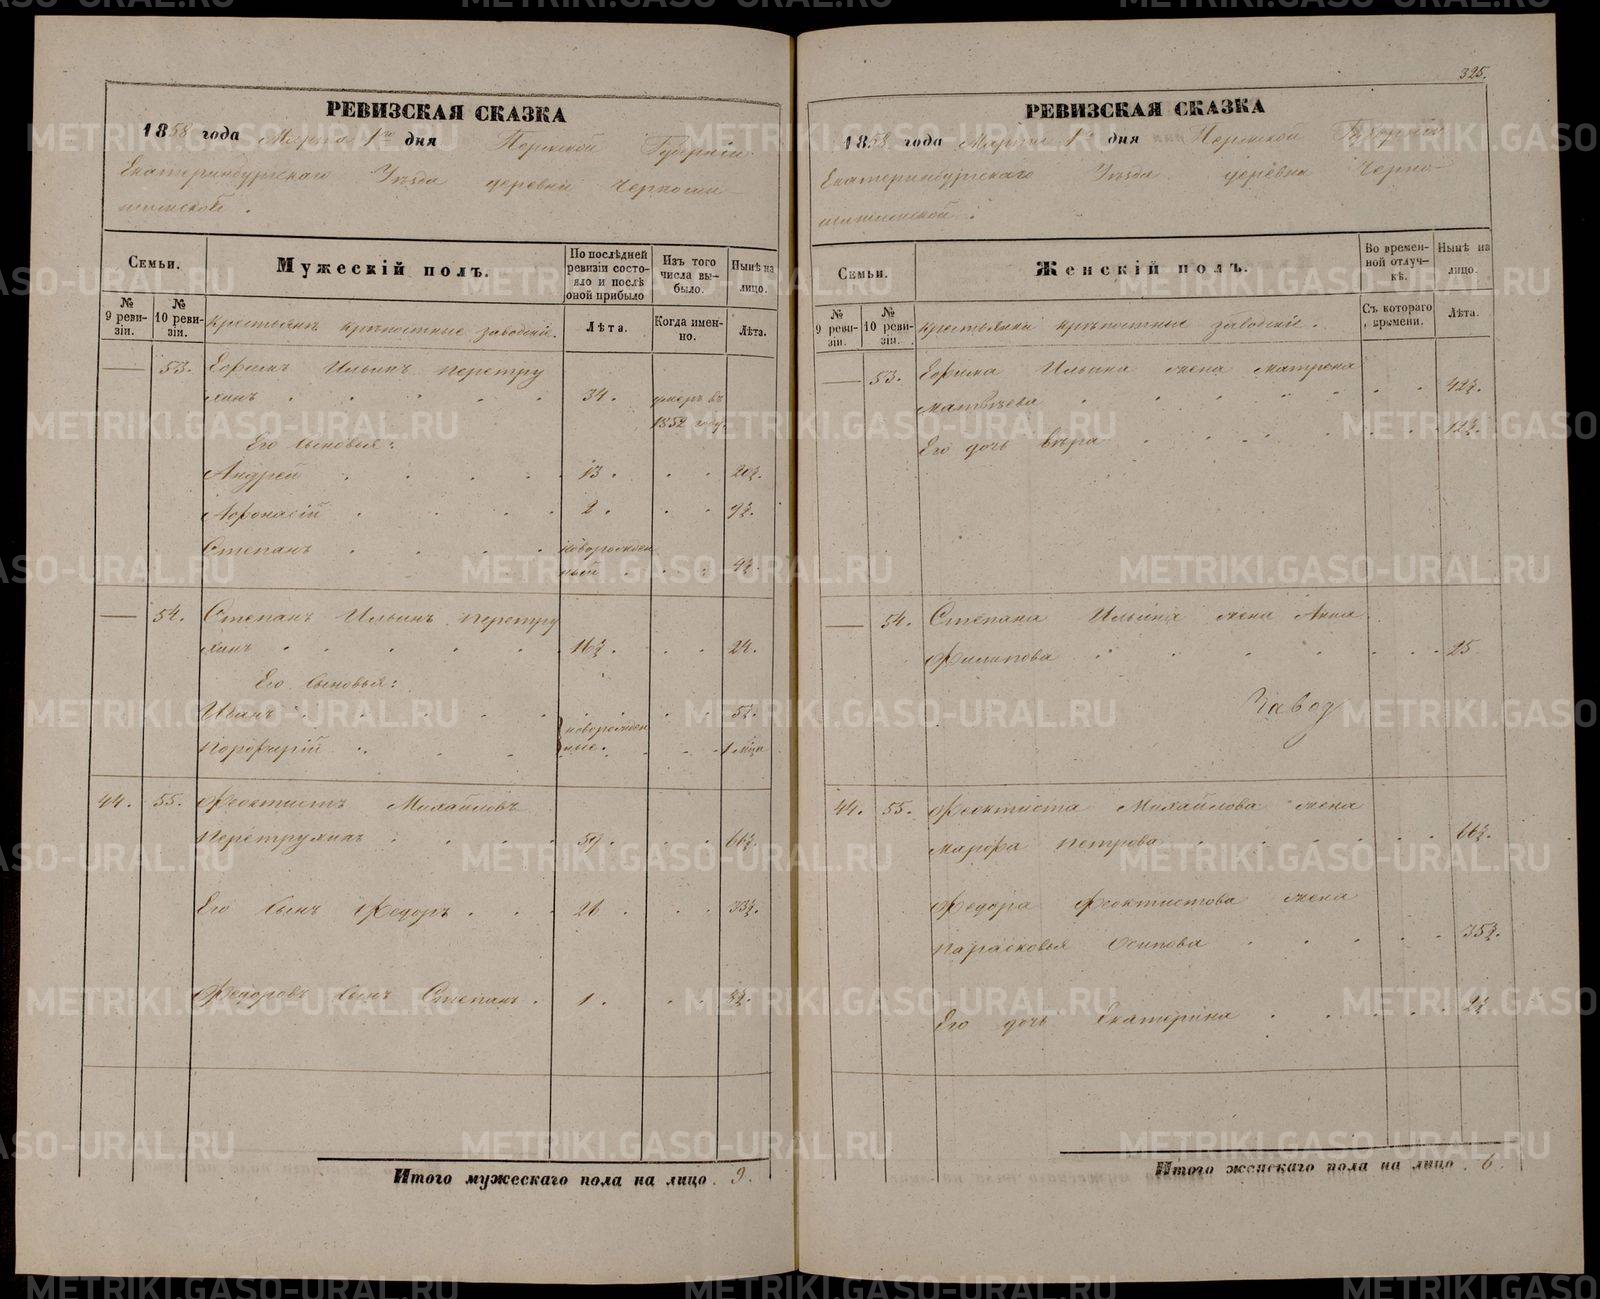 325.
РЕВИЗСКАЯ СКАЗКА
1858 года Марта 1го дня Пермской Губерніи
Екатеринбургскаго Уѣзда деревни Черноши-
шимской.
Семьи.
Мужескій полъ.
По послѣдней ревизіи состо-
яло и послѣ оной прибыло
Изъ того числа вы-
было.
Нынѣ на лицо.
№ 9 реви-
зіи.
№ 10 реви-
зіи.
Крестьянъ крѣпостные заводскіе.
Лѣта.
Когда имен-
но.
Лѣта.
— 53. Ефимъ Ильинъ Перетру
хинъ 34. умеръ въ
1852 году.
Его сыновья:
Андрей 13. 20½.
Афонасій 2. 9½.
Степанъ новорожден
ный 4½.
— 54. Степанъ Ильинъ Перетру
хинъ 16½. 24.
Его сыновья:
Иванъ 5½.
Порфирій новорожден
ные. 1 мѣца
44. 55. Феоктистъ Михайловъ
Перетрухинъ 59. 66½.
Его сынъ Федоръ 26. 33½.
Федоровъ сынъ Степанъ 1.
Итого мужескаго пола на лицо. 9.
РЕВИЗСКАЯ СКАЗКА
1858 года Марта 1го дня Пермской Губерніи
Екатеринбургскаго Уѣзда деревни Черно-
Семьи.
Женскій полъ.
Во времен-
ной отлуч-
кѣ.
Нынѣ на лицо.
№ 9 реви-
зіи.
№ 10 реви-
зіи.
Крестьянки крѣпостные заводскіе.
Съ котораго времени.
Лѣта.
— 53. Ефима Ильина жена Матрена
Матвѣева 42½.
Его дочь Вѣра 12½.
— 54. Степана Ильина жена Анна
Филипова 25.
Завод
44. 55. Феоктиста Михайлова жена
Марфа Петрова 66½.
Федора Феоктистова жена
Парасковья Осипова 35½.
Его дочь Екатерина 2½.
Итого женскаго пола на лицо. 6.
METRIKI.GASO-URAL.RU